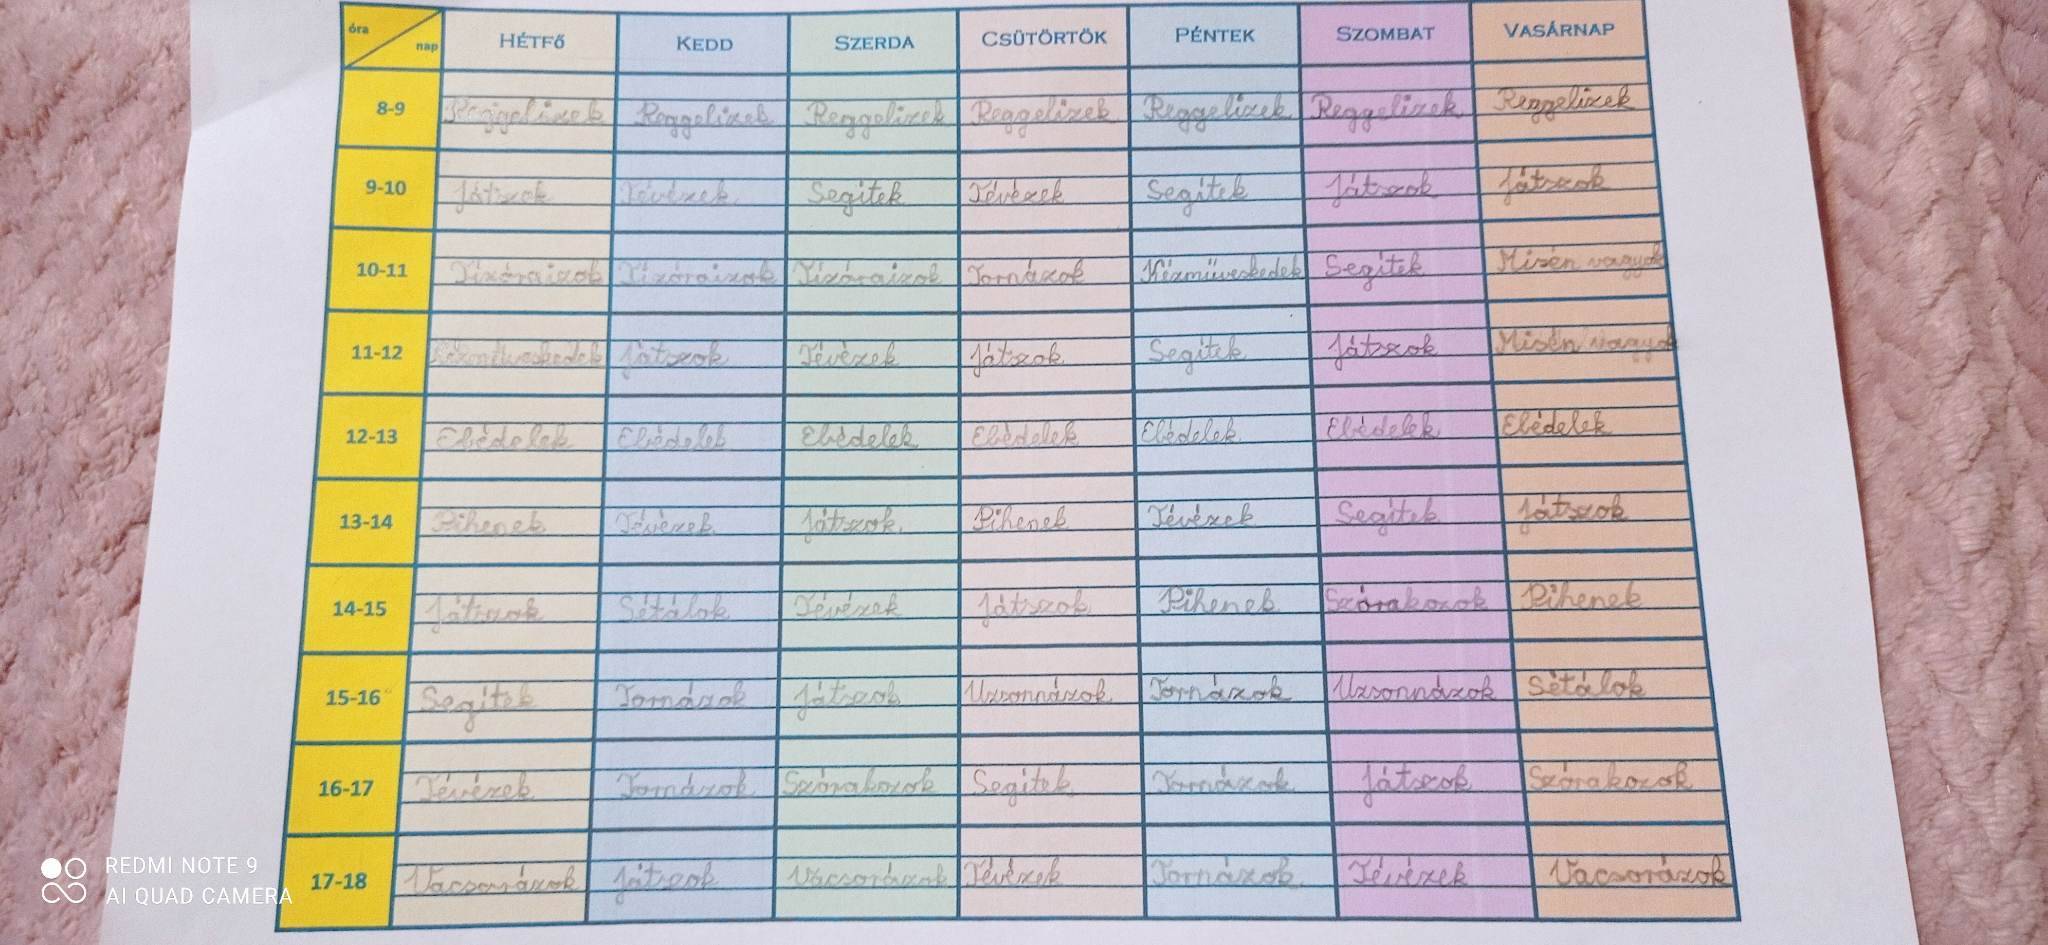 óra nap HÉTFŐ KEDD SZERDA CSÜTÖRTÖK PÉNTEK SZOMBAT VASÁRNAP
8-9 Reggelizek Reggelizek Reggelizek Reggelizek Reggelizek Reggelizek Reggelizek
9-10 Játszok Tévézek Segítek Tévézek Segítek Játszok Játszok
10-11 Tízóraizok Tízóraizok Tízóraizok Tornázok Kézműveskedek Segítek Misén vagyok
11-12 Kézműveskedek Játszok Tévézek Játszok Segítek Játszok Misén vagyok
12-13 Ebédelek Ebédelek Ebédelek Ebédelek Ebédelek Ebédelek Ebédelek
13-14 Pihenek Tévézek Játszok Pihenek Tévézek Segítek Játszok
14-15 Játszok Sétálok Tévézek Játszok Pihenek Szórakozok Pihenek
15-16 Segítek Tornázok Játszok Uzsonnázok Tornázok Uzsonnázok Sétálok
16-17 Tévézek Tornázok Szórakozok Segítek Tornázok Játszok Szórakozok
17-18 Vacsorázok Játszok Vacsorázok Tévézek Tornázok Tévézek Vacsorázok
REDMI NOTE 9
AI QUAD CAMERA